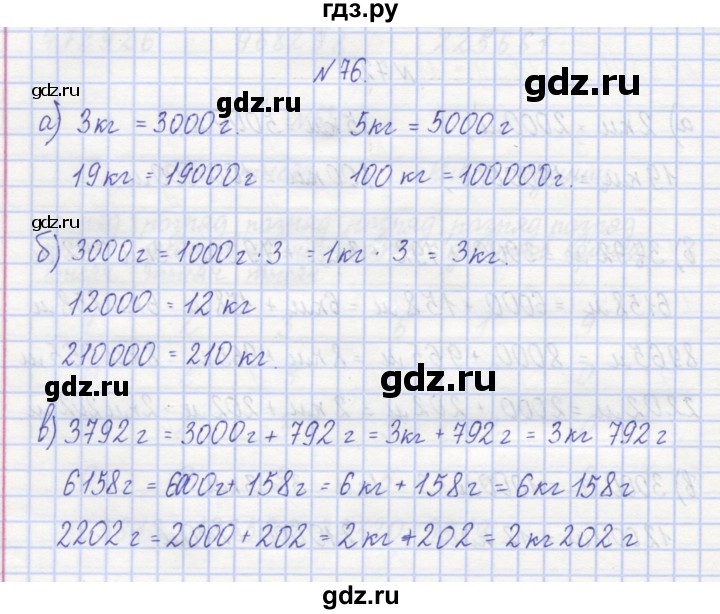 гдз.ру
№ 76.
gdz.ru gdz.ru gdz.ru
а) 3кг = 3000г. 5кг = 5000г
19кг = 19000г 100 кг = 100000г.
gdz.ru
б) 3000г = 1000г · 3 = 1кг · 3 = 3кг.
12000 = 12 кг
210000 = 210 кг.
gdz.ru gdz.ru
в) 3792 г = 3000г + 792 г = 3кг + 792 г = 3кг 792 г
gdz.ru gdz.ru
6158г = 6000г + 158г = 6 кг + 158 г = 6 кг 158г
2202 г = 2000 + 202 = 2 кг + 202 = 2 кг 202 г
gdz.ru gdz.ru